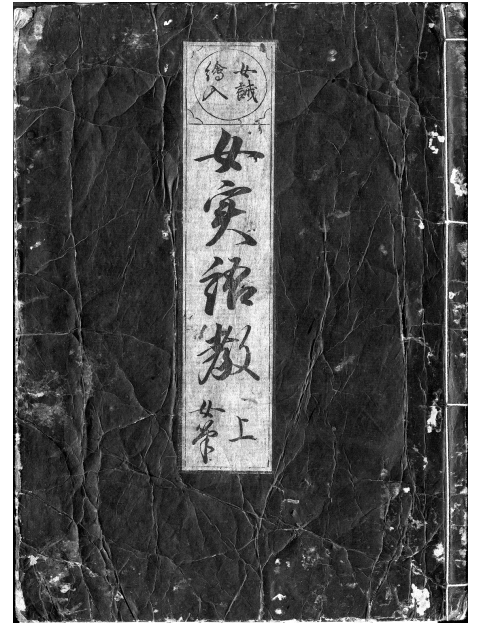 女誡
繪入
女実語教
上
女筆